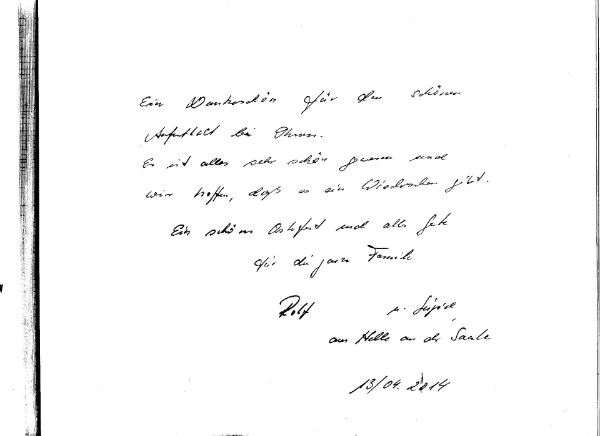 Ein Dankeschön für den schönen
Aufenthalt bei Ihnen.
Es ist alles sehr schön gewesen und
wir hoffen, daß es ein Wiedersehen gibt.
Ein schönes Osterfest und alles Gute
für die ganze Familie
Rolf u.
aus Halle an der Saale
13/04. 2014